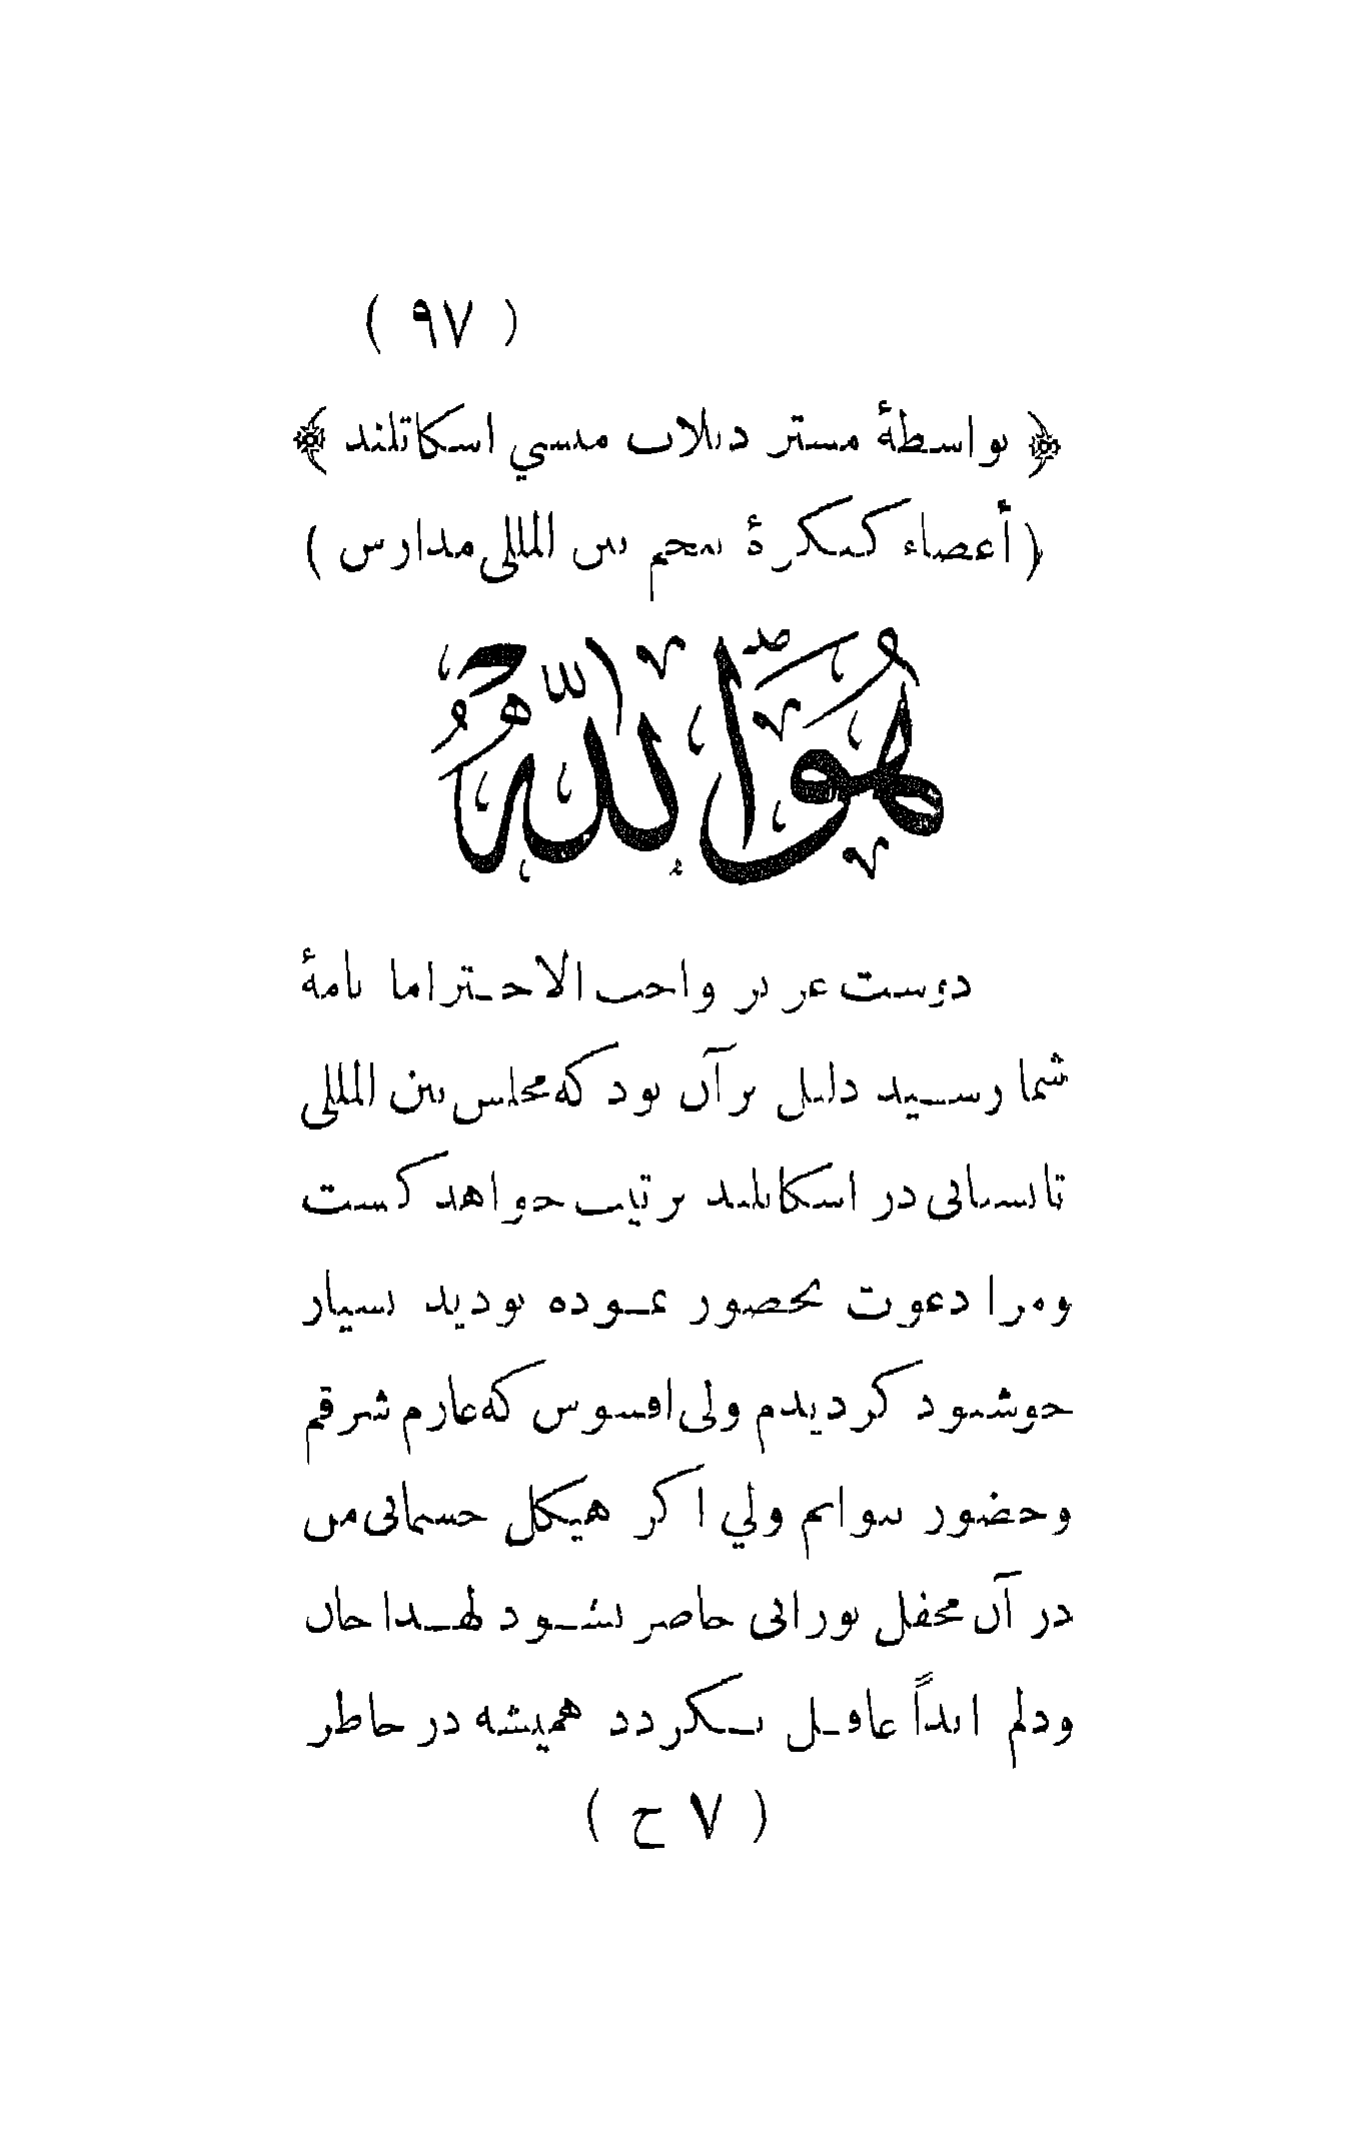 ( ٩٧ )
﴿ بواسطهٔ مستر دنلاب منسي اسكاتلند ﴾
( أعضاء كنكرهٔ پنجم بين المللى مدارس )
هُوَ اللهُ
دوست عزيز واجب الاحتراما نامهٔ
شما رسيد دليل بر آن بود كه مجلس بين المللى
تابستانى در اسكاتلند ترتيب خواهد كشت
ومرا دعوت بحضور نموده بوديد بسيار
خوشنود كرديدم ولى افسوس كه عازم شرقم
وحضور نتوانم ولي اكر هيكل جسمانى من
در آن محفل نورانى حاضر نشود لهذا جان
ودلم ابداً غافل نكردد هميشه در خاطر
( ٧ ح )